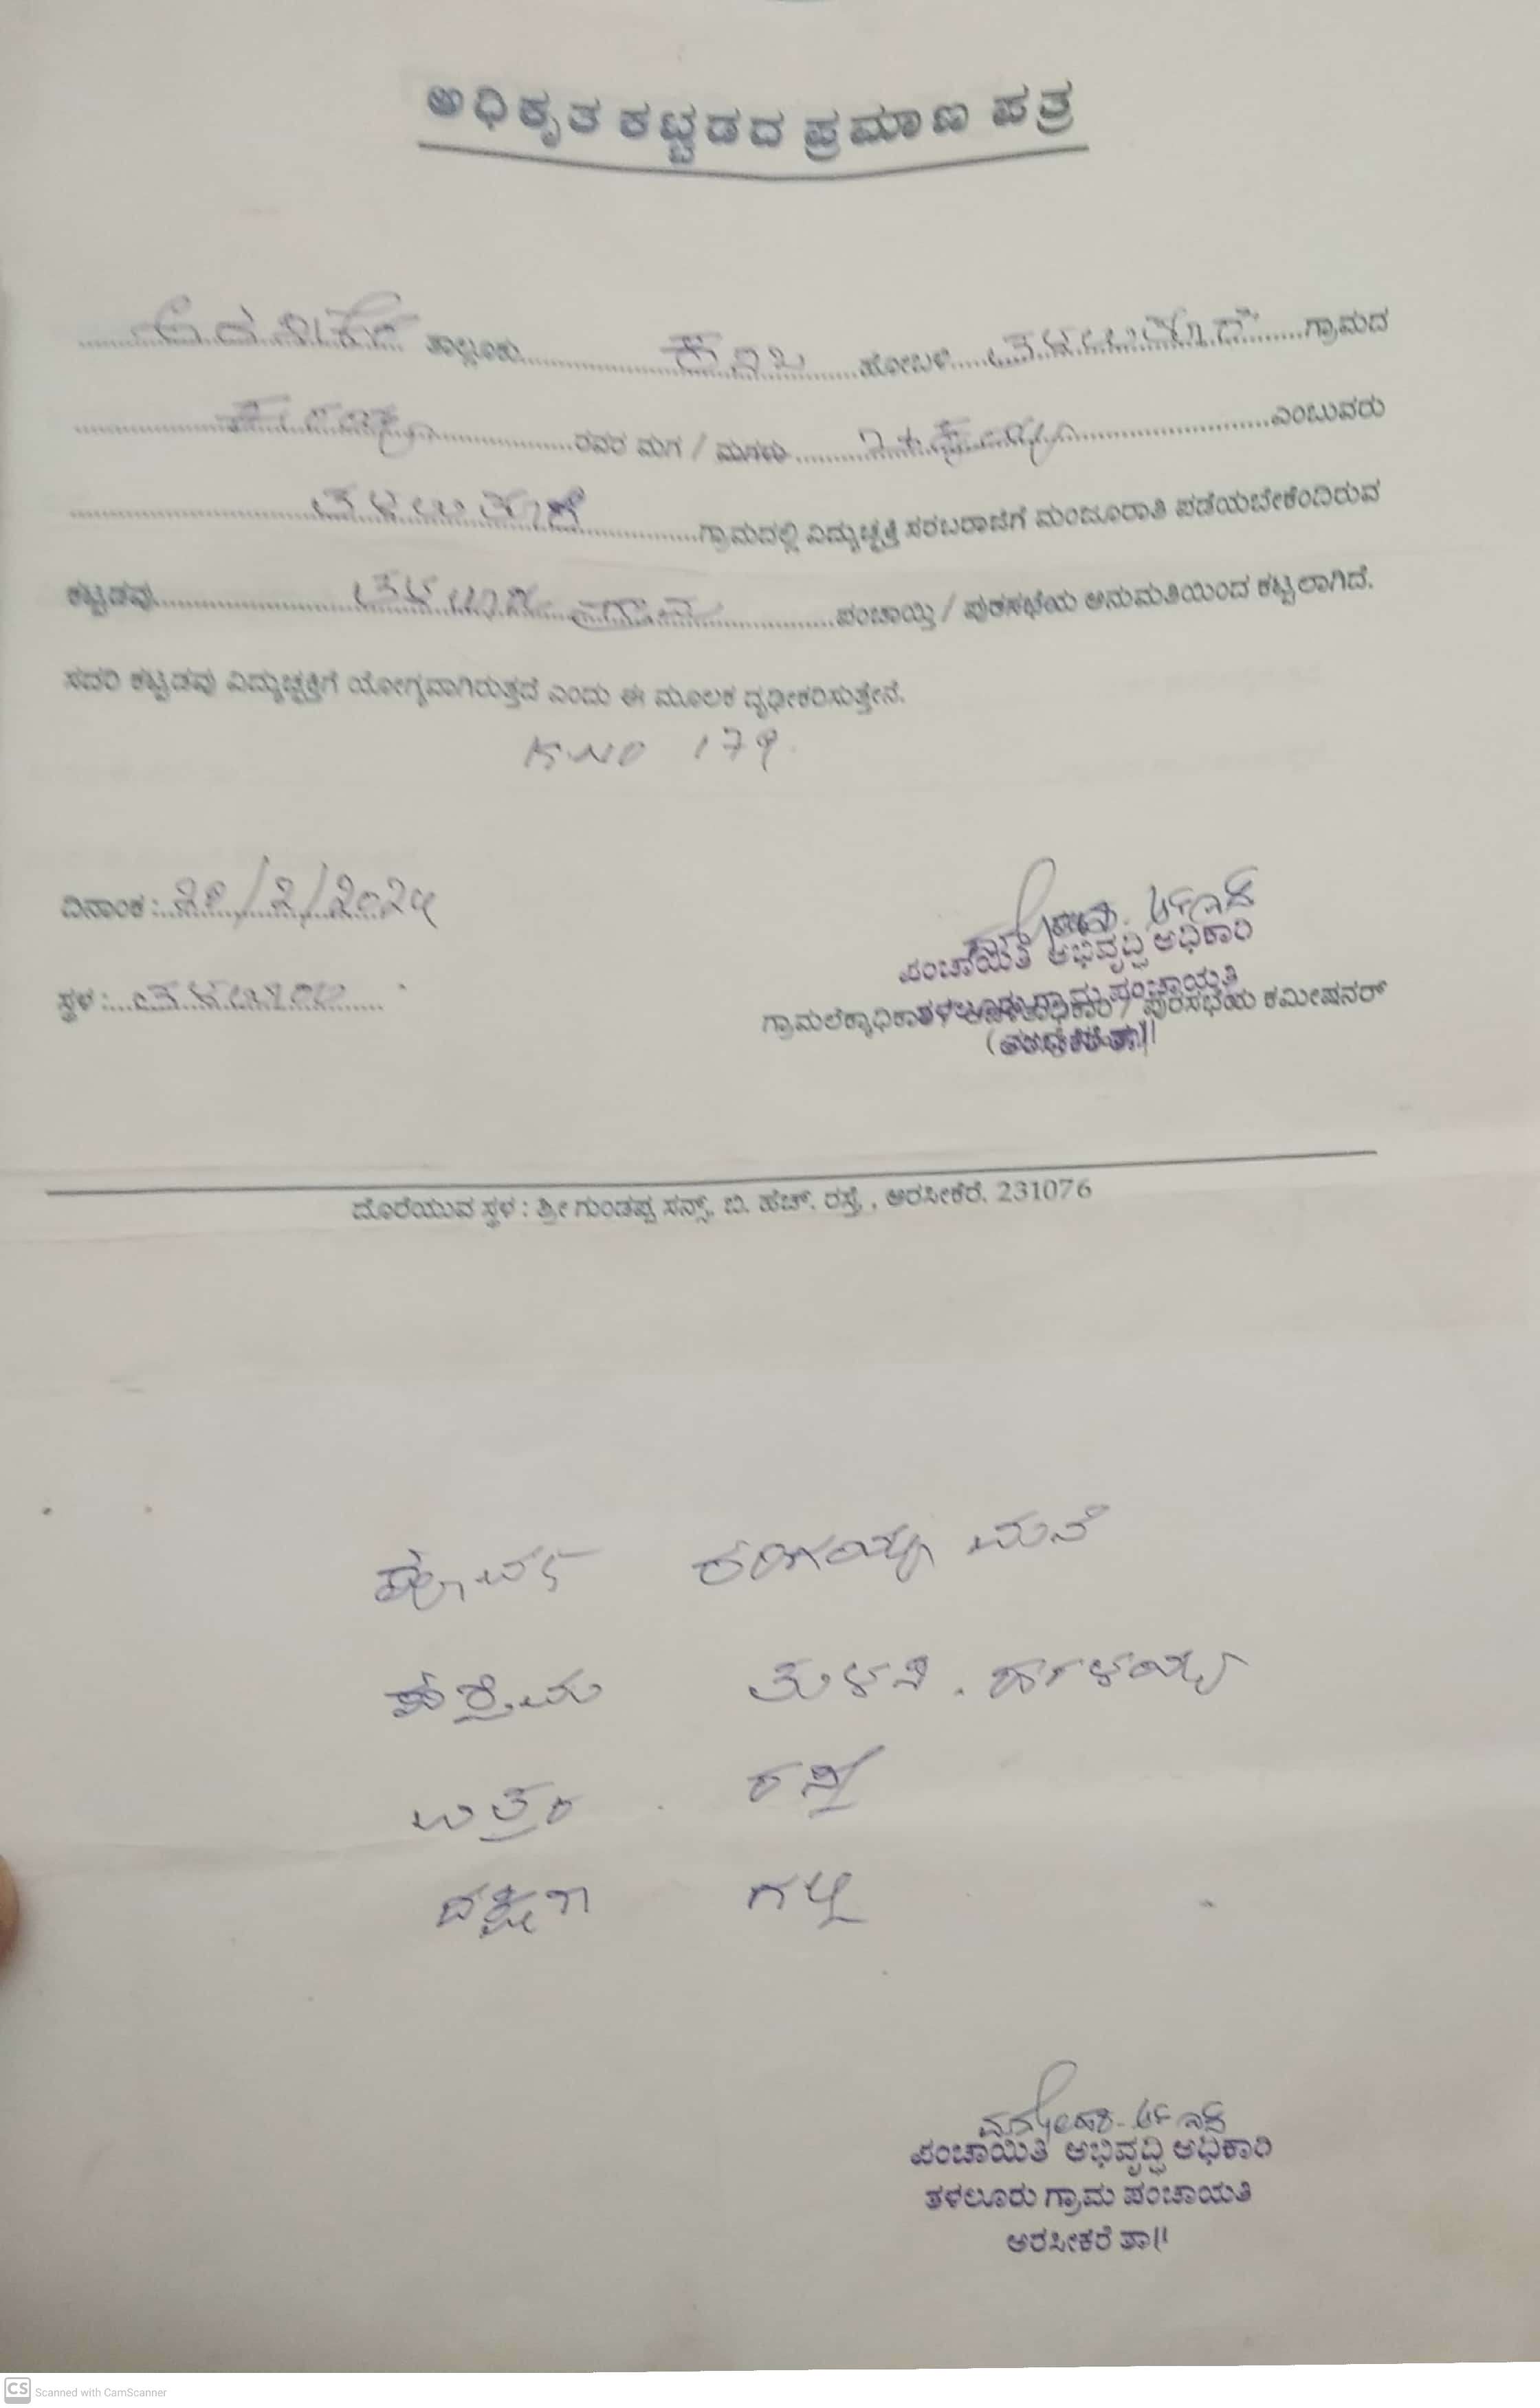 ಅಧಿಕೃತ ಕಟ್ಟಡದ ಪ್ರಮಾಣ ಪತ್ರ
ಅರಸೀಕೆರೆ ತಾಲ್ಲೂಕು ಕಸಬ ಹೋಬಳಿ ಗ್ರಾಮದ
ರವರ ಮಗ / ಮಗಳು ಎಂಬುವರು
ಗ್ರಾಮದಲ್ಲಿ ವಿದ್ಯುಚ್ಛಕ್ತಿ ಸರಬರಾಜಿಗೆ ಮಂಜೂರಾತಿ ಪಡೆಯಬೇಕೆಂದಿರುವ
ಕಟ್ಟಡವು ತಳಲೂರು ಗ್ರಾಮ ಪಂಚಾಯ್ತಿ / ಪುರಸಭೆಯ ಅನುಮತಿಯಿಂದ ಕಟ್ಟಲಾಗಿದೆ.
ಸದರಿ ಕಟ್ಟಡವು ವಿದ್ಯುಚ್ಛಕ್ತಿಗೆ ಯೋಗ್ಯವಾಗಿರುತ್ತದೆ ಎಂದು ಈ ಮೂಲಕ ದೃಢೀಕರಿಸುತ್ತೇನೆ.
K NO 179
ದಿನಾಂಕ : /2/2024
ಪಂಚಾಯಿತಿ ಅಭಿವೃದ್ಧಿ ಅಧಿಕಾರಿ
ತಳಲೂರು ಗ್ರಾಮ ಪಂಚಾಯತಿ
ಸ್ಥಳ : ತಳಲೂರು
ಗ್ರಾಮಲೆಕ್ಕಾಧಿಕಾರಿ / / ಪುರಸಭೆಯ ಕಮೀಷನರ್
ದೊರೆಯುವ ಸ್ಥಳ : ಶ್ರೀ ಗುಂಡಪ್ಪ ಸನ್ಸ್, ಬಿ. ಹೆಚ್. ರಸ್ತೆ, ಅರಸೀಕೆರೆ. 231076
ಪೂರ್ವ ರಂಗಯ್ಯ ಮನೆ
ಪಶ್ಚಿಮ
ಉತ್ತರ ರಸ್ತೆ
ದಕ್ಷಿಣ ಗಲ್ಲಿ
ಪಂಚಾಯಿತಿ ಅಭಿವೃದ್ಧಿ ಅಧಿಕಾರಿ
ತಳಲೂರು ಗ್ರಾಮ ಪಂಚಾಯತಿ
ಅರಸೀಕೆರೆ ತಾ||
CS Scanned with CamScanner